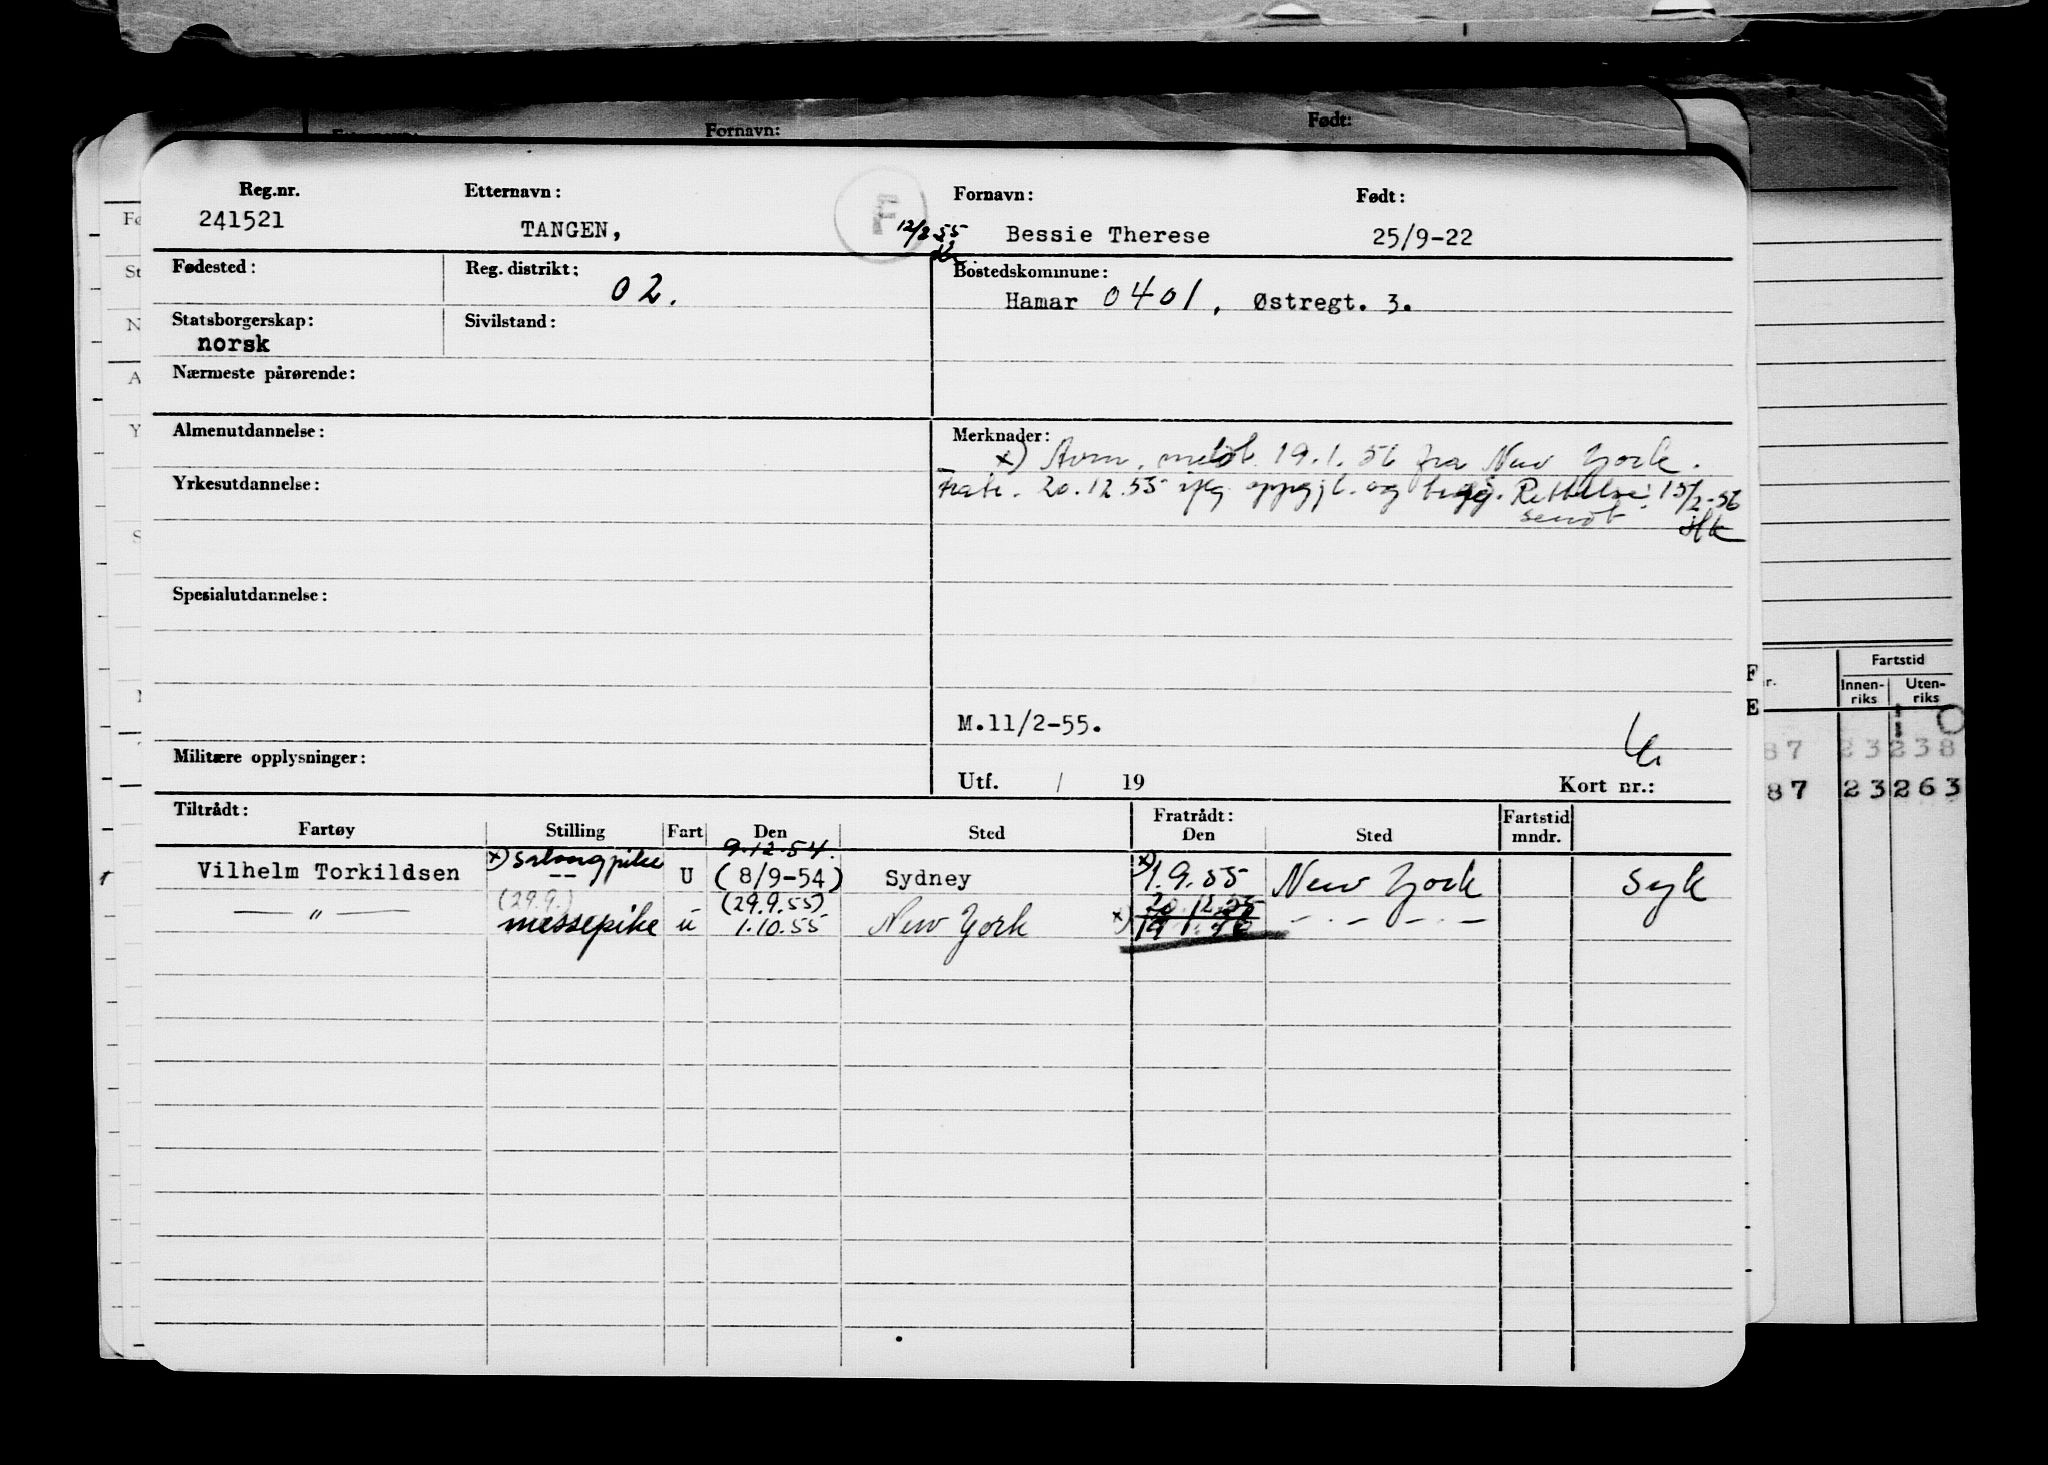 Fornavn:
Født:
Reg.nr.
Etternavn:
Fornavn:
Født:
241521
TANGEN,
F
12/2 55
Bessie Therese
25/9-22
Fødested:
Reg. distrikt:
02.
Bostedskommune:
Hamar 0401, Østregt. 3.
Statsborgerskap:
norsk
Sivilstand:
Nærmeste pårørende:
Almenutdannelse:
Merknader:
x) Avm. meldt 19.1.56 fra New York.
Fratr. 20.12.55 ifg. oppgjt. og Rettelse 15/2-56
sendt
Yrkesutdannelse:
Spesialutdannelse:
M.11/2-55.
Militære opplysninger:
Utf. / 19
Kort nr.:
Tiltrådt:
Fratrådt:
Fartøy
Stilling
Fart
Den
Sted
Den
Sted
Fartstid
mndr.
9.12.54.
Vilhelm Torkildsen
x) salongpike
--
U
(8/9-54)
Sydney
x) 1.9.55
New York
syk
(29.9.)
(29.9.55)
20.12.55
— " —
messepike
u
1.10.55
New York
x)
— . — . — . —
Fartstid
Innen-
riks
Uten-
riks
F
E
r.
87
23
238
87
23
263